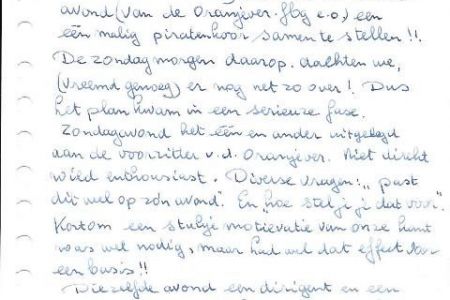 avond (van de Oranjever. fbg e.o.) een
één malig piratenkoor samen te stellen!!.
De zondagmorgen daarop dachten we,
(vreemd genoeg) er nog net zo over! Dus
het plan kwam in een serieuze fase.
Zondagavond het één en ander uitgelegd
aan de voorzitter v.d. Oranjever. Niet direkt
wild enthousiast. Diverse vragen:„ past
dit wel op zo'n avond". En „hoe stel je je dat voor".
Kortom een stukje motievatie van onze kant
was wel nodig, maar had wel dat effect
een basis!!
Diezelfde avond een dirigent en een